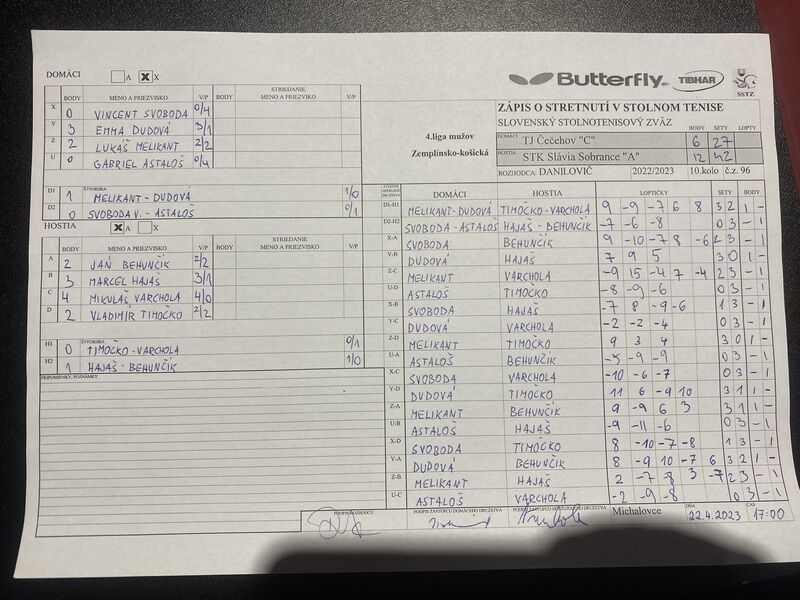 DOMÁCI A X X
BODY MENO A PRIEZVISKO V/P BODY STRIEDANIE MENO A PRIEZVISKO V/P
X 0 VINCENT SVOBODA 0/4
Y 3 EMMA DUDOVÁ 3/1
Z 2 LUKÁŠ MELIKANT 2/2
U 0 GABRIEL ASTALOŠ 0/4
ŠTVORHRA
D1 1 MELIKANT - DUDOVÁ 1/0
D2 0 SVOBODA V. - ASTALOŠ 0/1
HOSTIA X A X
BODY MENO A PRIEZVISKO V/P BODY STRIEDANIE MENO A PRIEZVISKO V/P
A 2 JÁN BEHUNČÍK 2/2
B 3 MARCEL HAJAŠ 3/1
C 4 MIKULÁŠ VARCHOLA 4/0
D 2 VLADIMÍR TIMOČKO 2/2
ŠTVORHRA
H1 0 TIMOČKO - VARCHOLA 0/1
H2 1 HAJAŠ - BEHUNČÍK 1/0
PRIPOMIENKY, POZNÁMKY
PODPIS ROZHODCU
Butterfly TIBHAR SSTZ
ZÁPIS O STRETNUTÍ V STOLNOM TENISE
SLOVENSKÝ STOLNOTENISOVÝ ZVÄZ
4.liga mužov
Zemplínsko-košická
BODY SETY LOPTY
DOMÁCI TJ Čečehov "C" 6 27
HOSTIA STK Slávia Sobrance "A" 12 42
ROZHODCA: DANILOVIČ 2022/2023 10.kolo č.z. 96
DOMÁCI HOSTIA LOPTIČKY SETY BODY
D1-H1 MELIKANT-DUDOVÁ TIMOČKO-VARCHOLA 9 -9 -7 6 8 3 2 1 -
D2-H2 SVOBODA-ASTALOŠ HAJAŠ-BEHUNČÍK -7 -6 -8 0 3 - 1
X-A SVOBODA BEHUNČÍK 9 -10 -7 8 -6 2 3 - 1
Y-B DUDOVÁ HAJAŠ 7 9 5 3 0 1 -
Z-C MELIKANT VARCHOLA -9 15 -4 7 -4 2 3 - 1
U-D ASTALOŠ TIMOČKO -8 -9 -6 0 3 - 1
X-B SVOBODA HAJAŠ -7 8 -9 -6 1 3 - 1
Y-C DUDOVÁ VARCHOLA -2 -2 -4 0 3 - 1
Z-D MELIKANT TIMOČKO 9 3 4 3 0 1 -
U-A ASTALOŠ BEHUNČÍK -5 -9 -9 0 3 - 1
X-C SVOBODA VARCHOLA -10 -6 -7 0 3 - 1
Y-D DUDOVÁ TIMOČKO 11 6 -9 10 3 1 1 -
Z-A MELIKANT BEHUNČÍK 9 -9 6 3 3 1 1 -
U-B ASTALOŠ HAJAŠ -9 -11 -6 0 3 - 1
X-D SVOBODA TIMOČKO 8 -10 -7 -8 1 3 - 1
Y-A DUDOVÁ BEHUNČÍK 8 -9 10 -7 6 3 2 1 -
Z-B MELIKANT HAJAŠ 2 -7 -8 3 -7 2 3 - 1
U-C ASTALOŠ VARCHOLA -2 -9 -8 0 3 - 1
PODPIS ZÁSTUPCU DOMÁCEHO DRUŽSTVA Michalovce DŇA 22.4.2023 ČAS 17:00